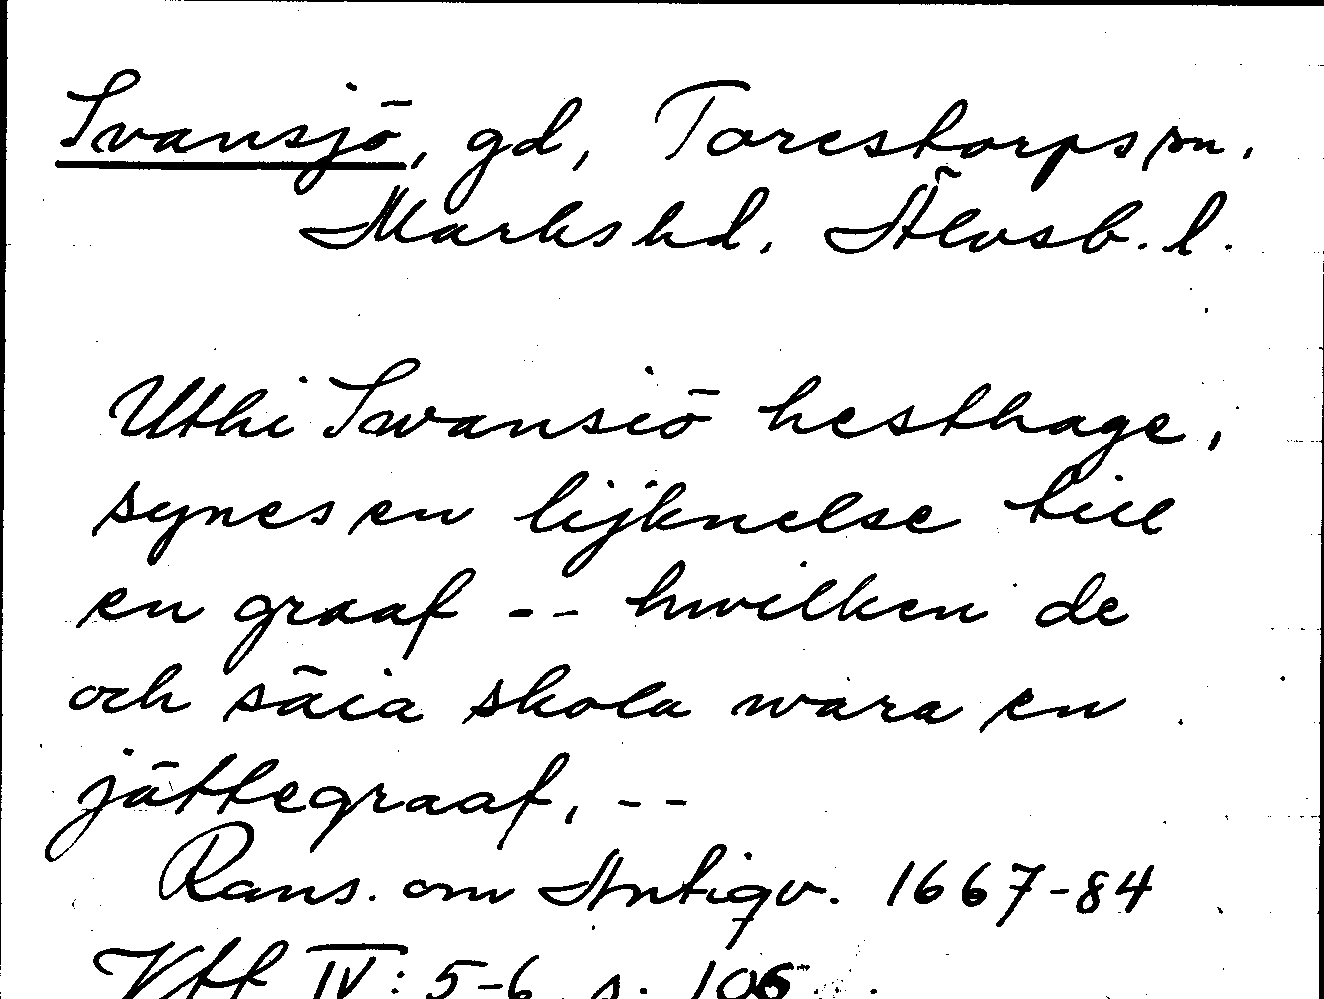 Svansjö, gd, Torestorps sn.
Marks hd, Älvsb. l.
Uthi Swansiö hesthage,
synes en lijknelse till
en graaf -- hwilken de
och säia skola wara en
jättegraaf, --
Rans. om Antiqv. 1667-84
Vff IV: 5-6 s. 106